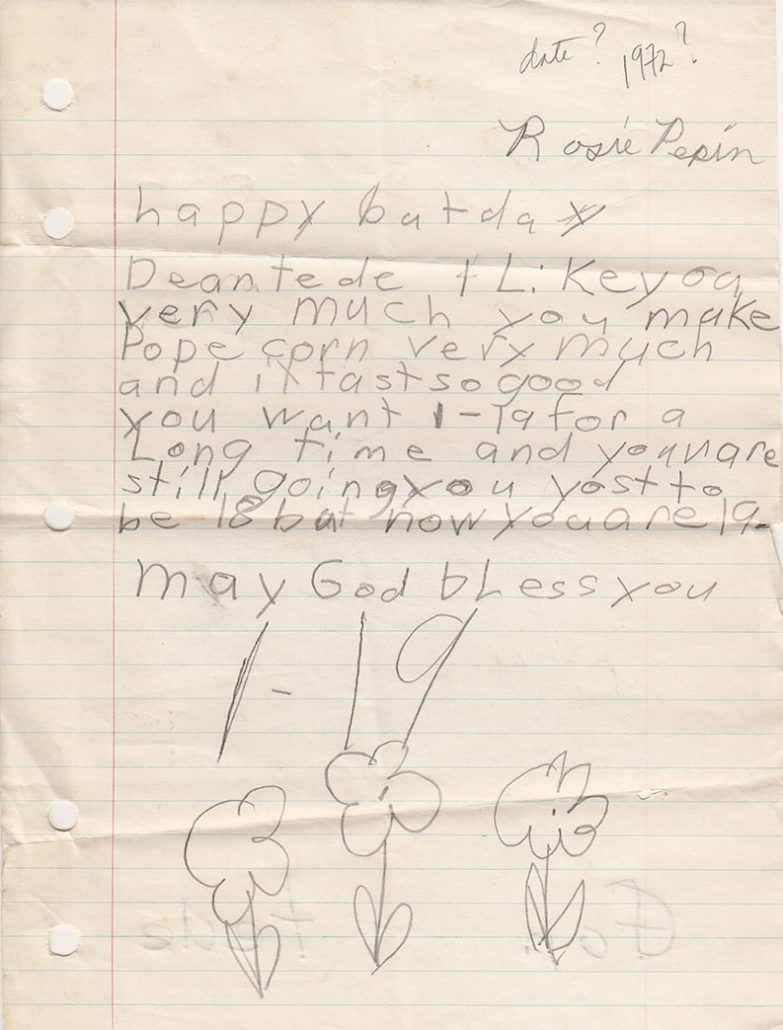 date? 1972?
Rosie Pepin
happy batday
Dean tede I Like you
very much you make
Pope corn very much
and it tast so good
you want 1-19 for a
Long time and younare
still going you yost to
be 18 but now you are 19
may God bLess you
1-19
For tede